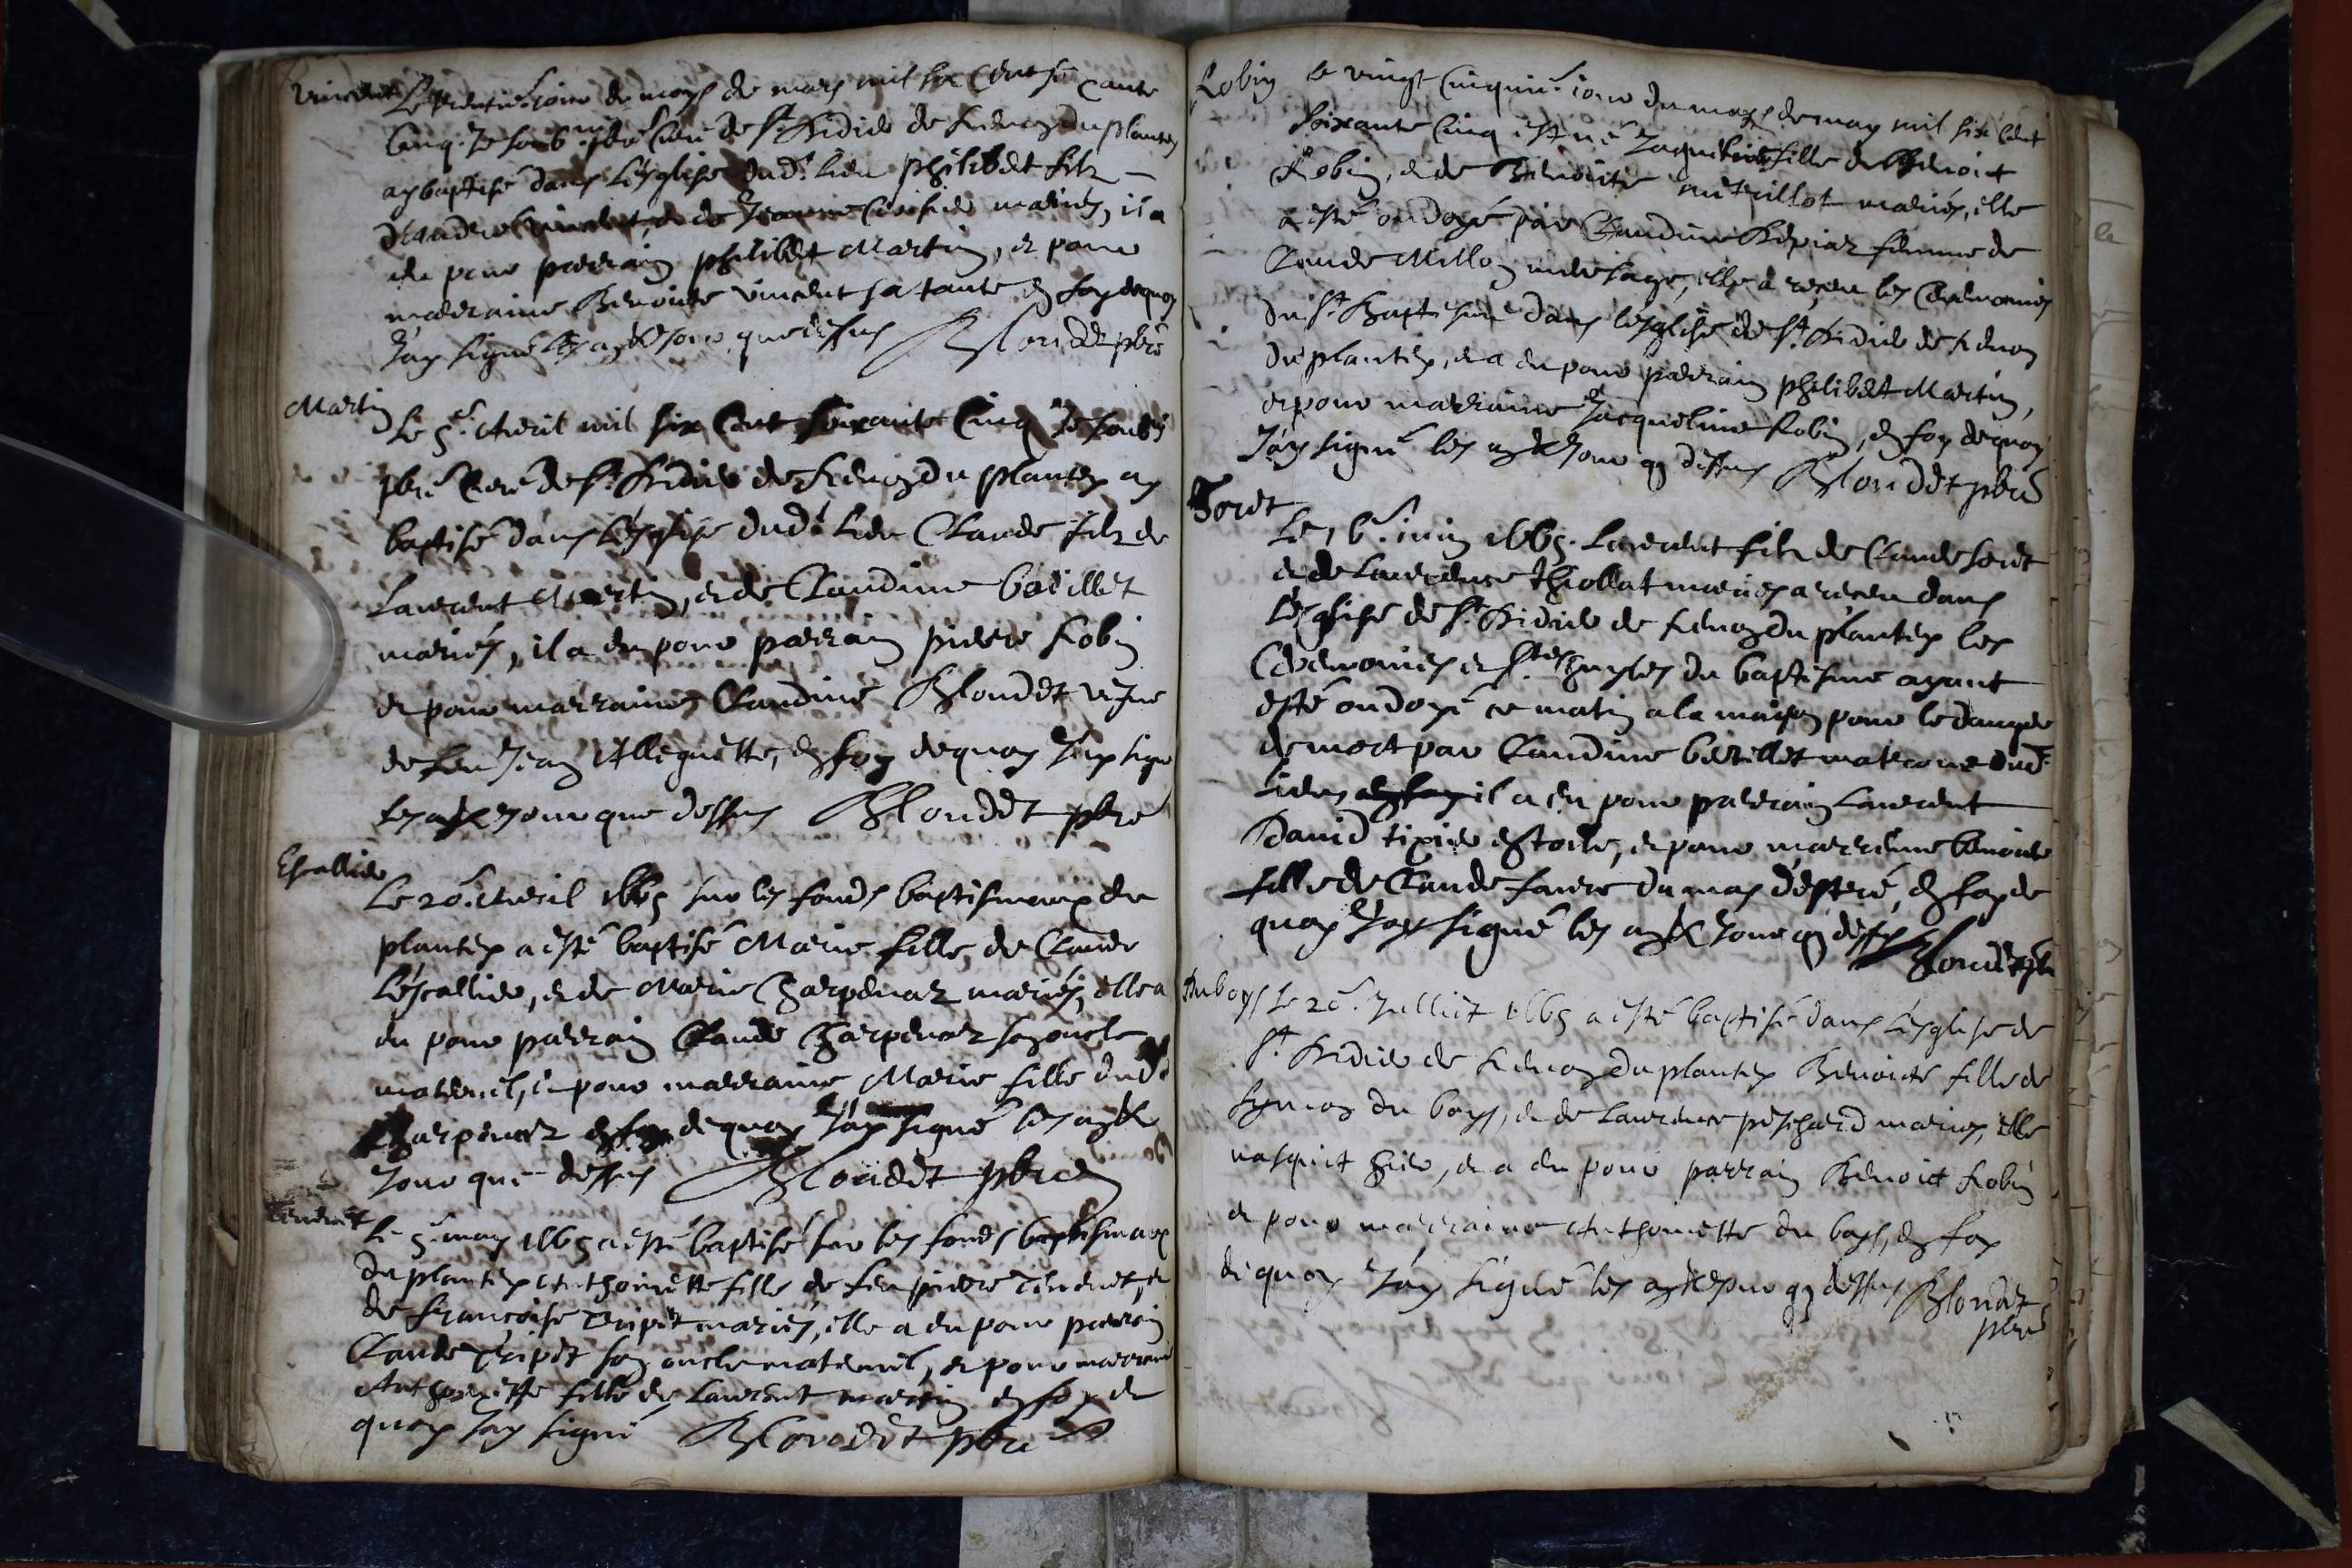 Vincent Le jour du moys de mars mil six cent soixante
Cinq Je soub.né pbre Curé de St. Didier de Renon du plantey
ay baptisé dans l'esglise dud.t lieu philibert filz
d'andre Vincent, et de Jeanne mariés, il a
eu pour parrain philibert Martin, et pour
marraine Benoiste Vincent sa tante en foy dequoy
J'ay signé les an et Jour que dessus Blondet pbre
Martin
Le 5.e Avril mil six Cent soixante Cinq Je soub.né
pbre Curé de St. Didier de Renon du plantey ay
baptisé dans l'esglise dud.t lieu Claude filz de
Laurent Martin, et de Claudine
mariés, il a eu pour parrain pierre Robin
et pour marraine Claudine Blondet vefve
de feu Jean Alleguette, en foy dequoy J'ay signé
les an et Jour que dessus Blondet pbre
Escallier
Le 20.e Avril 1665 sur les fonds baptismaux du
plantey a esté baptisé Marie fille de Claude
L'escallier, et de Marie Charpenar mariés, elle a
eu pour parrain Claude Charpenar son oncle
maternel, et pour marraine Marie fille dud.t
Charpenar en foy dequoy J'ay signé les an et
Jour que dessus Blondet pbre
Tendret
Le 5.e may 1665 a esté baptisé sur les fonds baptismaux
du plantey Anthoinette fille de feu pierre Tendret, et
de Francoise Tripet mariés, elle a eu pour parrain
Claude Tripet son oncle maternel, et pour marraine
Anthoinette fille de Laurent Martin en foy de
quoy J'ay signé Blondet pbre
Robin Le vingt Cinquie.e iour du moys de may mil six Cent
soixante Cinq est né Jaqueline fille de Benoict
Robin, et de Benoiste mariés, elle
a esté ondoyé par Claudine femme de
Claude Millon mere sage, elle a receu les Ceremonies
du St. Baptesme dans l'esglise de St. Didier de Renon
du plantey, et a eu pour parrain philibert Martin,
et pour marraine Jacqueline Robin, en foy dequoy
J'ay signé les an et Jour q dessus Blondet pbre
Soret
Le 16.e iuin 1665. Laurent filz de Claude Soret
et de Laurence Thiollat mariés a receu dans
l'esglise de St. Didier de Renon du plantey les
Ceremonies et Stes huyles du baptesme ayant
esté ondoyé ce matin a la maison pour le danger
de mort par Claudine matrone dud.t
lieu il a eu pour parrain Laurent
David tixier en toile, et pour marraine benoite
fille de Claude faure du mas en foy de
quoy J'ay signé les an et Jour q dessus
Blondet pbre
Duboys Le 20.e Julliet 1665 a esté baptisé dans l'esglise de
St. Didier de Renon du plantey Benoiste fille de
Symon du boys, et de Laurence peschard mariés, elle
nasquit hier, et a eu pour parrain Benoict Robin
et pour marraine Anthoinette du boys, en foy
dequoy J'ay signé les an et Jour q dessus Blondet
pbre